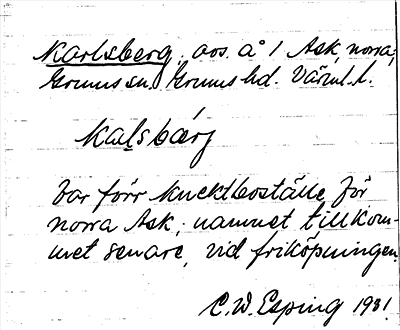 Karlsberg, avs. å 1 Ask, norra,
Grums sn. Grums hd. Värml. l.
Kalsbærj
Var förr knektboställe för
norra Ask; namnet tillkom-
met senare, vid friköpningen.
C. W. Esping 1931.